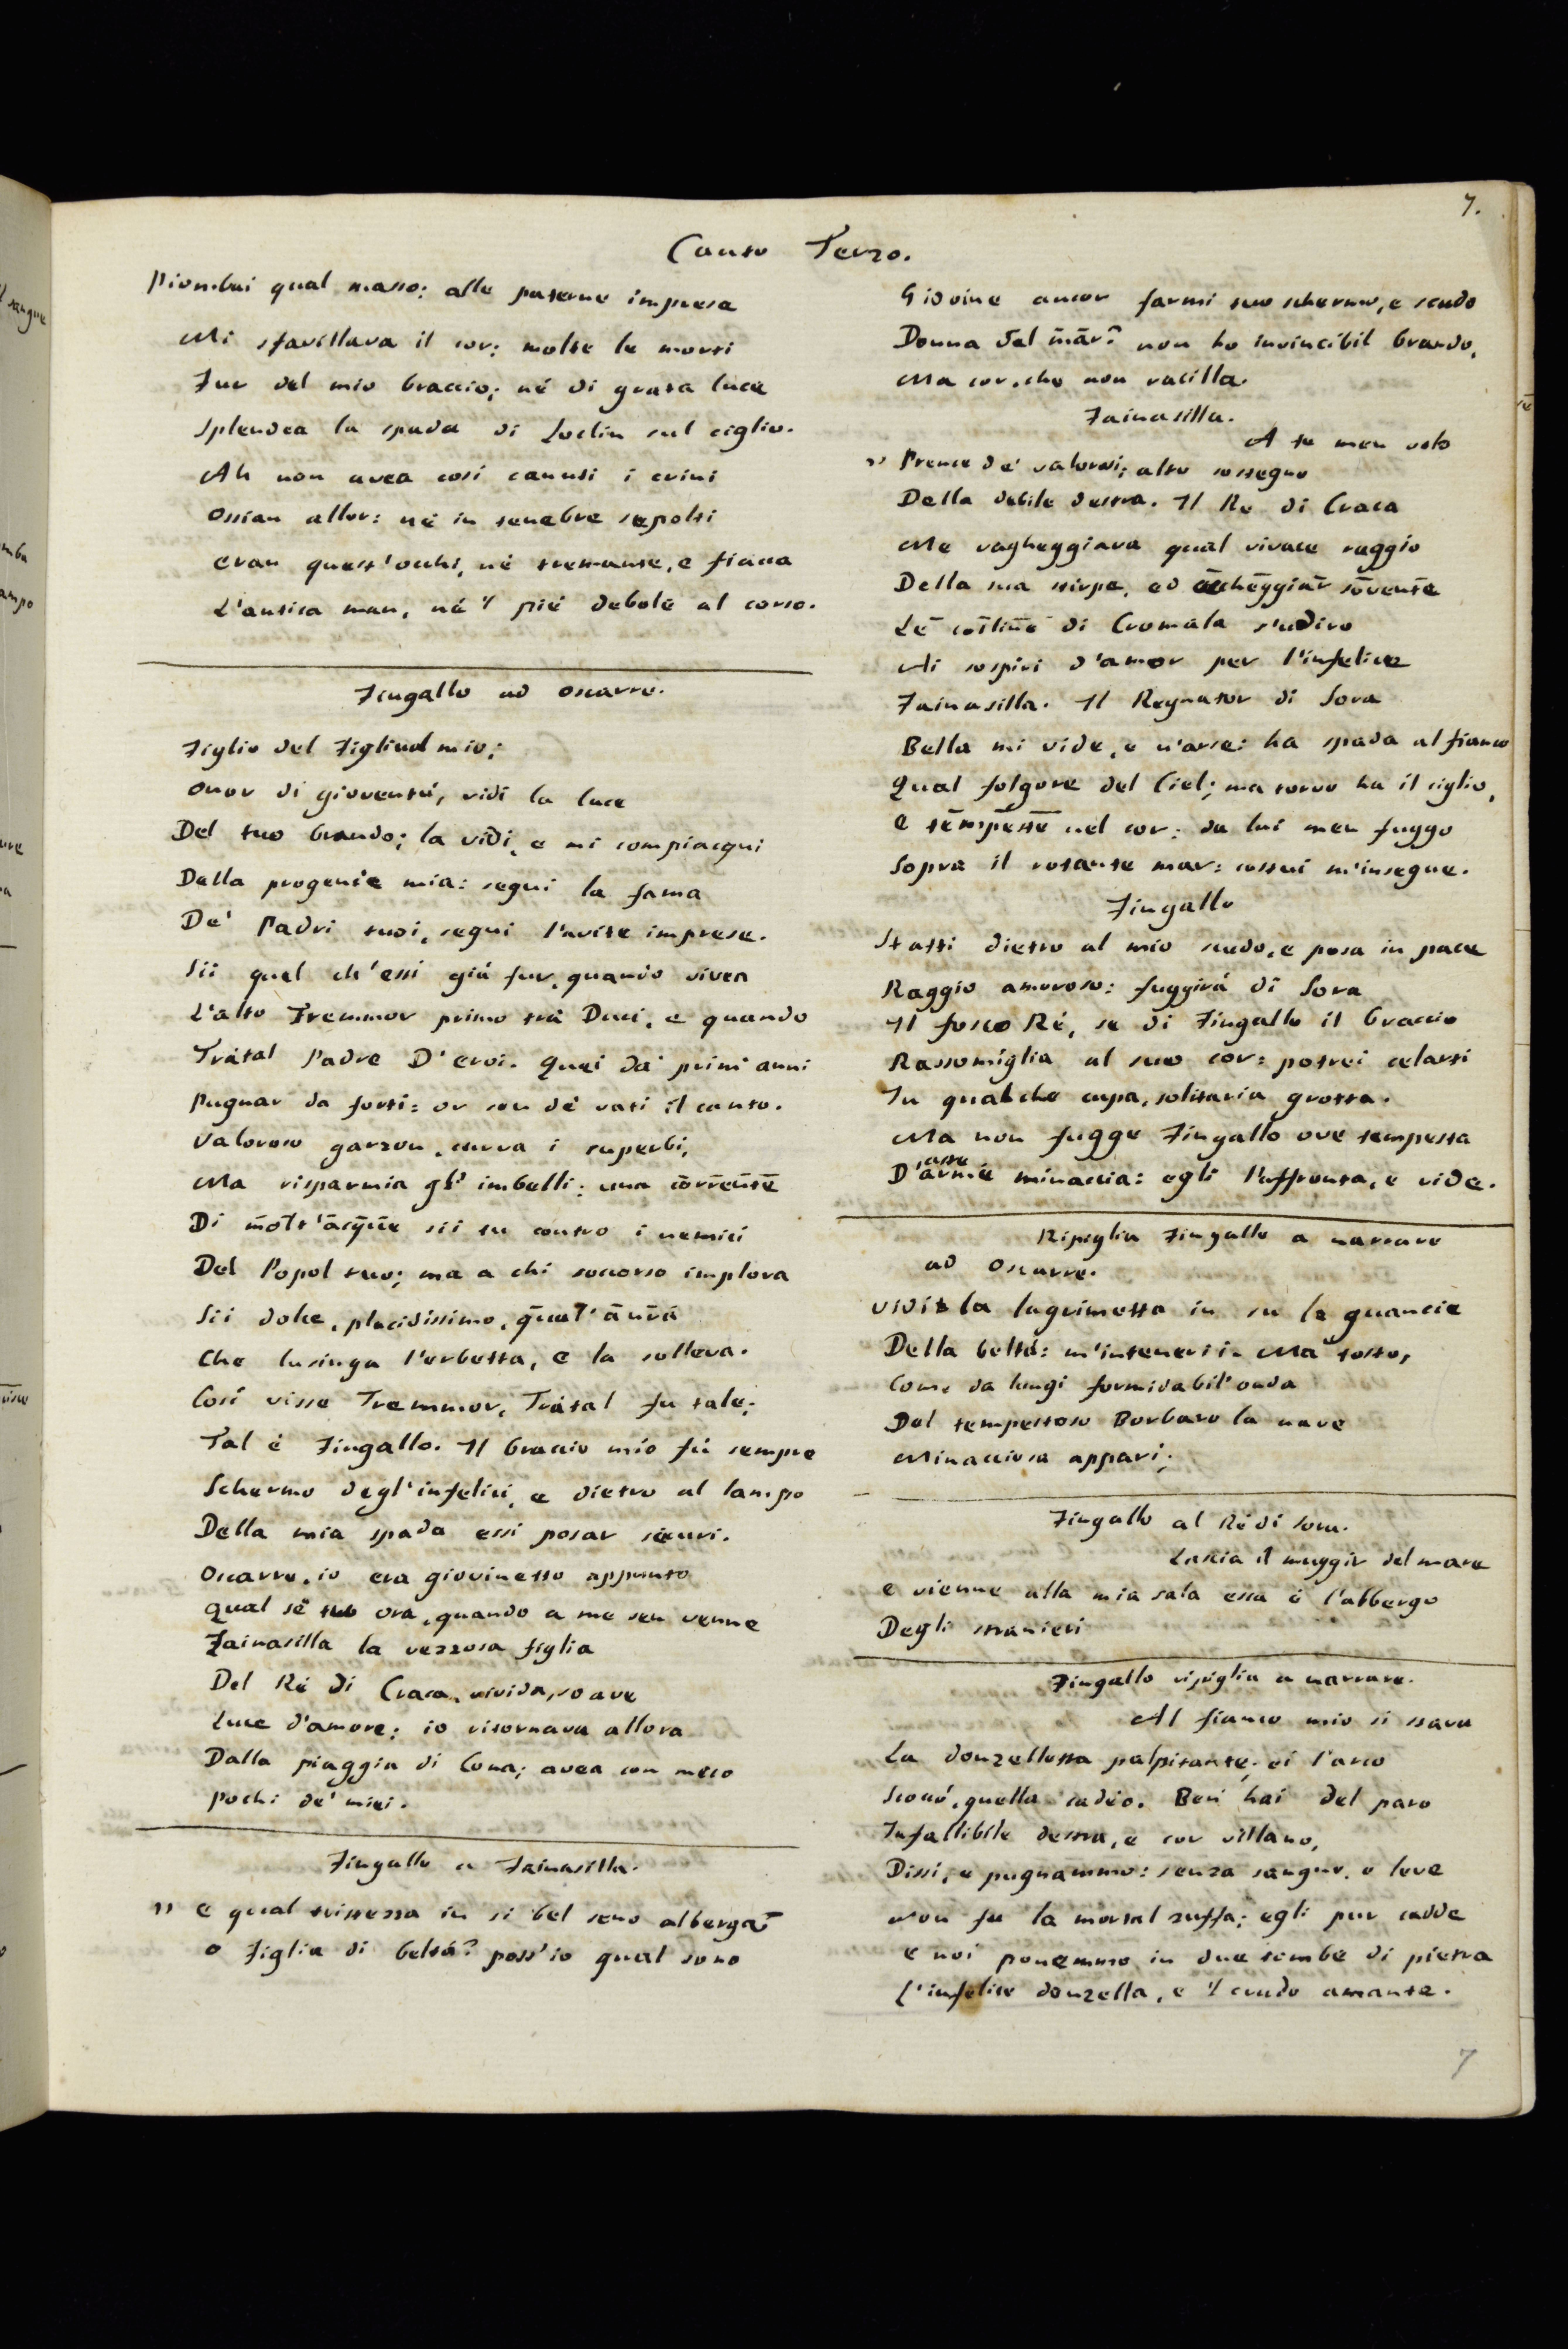 7.
Canto Terzo.
Piombai qual masso: alle paterne imprese
Mi sfavillava il cor; molte le morti
Fur del mio braccio; né di grata luce
Splendea la spada di Loclin sul ciglio.
Ah non avea così canuti i crini
Ossian allor: né in tenebre sepolti
eran quest'occhi, né tremante, e fiacca
L'antica man, né 'l piè debole al corso.
Fingallo ad Oscarre.
Figlio del Figliuol mio;
Onor di gioventù, vidi la luce
Del tuo brando; la vidi, e mi compiacqui
Della progenie mia: segui la fama
De' Padri tuoi, segui l'avite imprese.
Sii quel ch'essi già fur, quando vivea
L'alto Tremmor primo trà Duci, e quando
Tràtal Padre D'eroi. Quei da' primi anni
Pugnar da forti: or son dè vati il canto.
Valoroso garzon, curva i superbi,
Ma risparmia gl' imbelli; una corrente
Di molt'acque sii tu contro i nemici
Del Popol tuo; ma a chi soccorso implora
Sii dolce, placidissimo, qual'aura
Che lusinga l'erbetta, e la solleva.
Così visse Tremmor, Tràtal fu tale;
Tal è Fingallo. Il braccio mio fù sempre
Schermo degl'infelici, e dietro al lampo
Della mia spada essi posar sicuri.
Oscarre, io era giovinetto appunto
qual sè tu ora, quando a me sen venne
Fainasilla la vezzosa figlia
Del Rè di Craca, vivida, soave
Luce d'amore; io ritornava allora
Dalla piaggia di Cona; avea con meco
Pochi de' miei.
Fingallo a Fainasilla.
" e qual tristezza in si bel seno alberga
o Figlia di beltà? poss'io qual sono
Giovine ancor farmi tuo schermo, e scudo
Donna del mar? non ho invincibil brando,
Ma cor, che non vacilla.
Fainasilla.
A te men volo
" Prence de' valorosi; alto sostegno
Della debile destra. Il Re di Craca
Me vagheggiava qual vivace raggio
Della sua stirpe, ed echeggiar sovente
Le colline di Cromala s'udiro
Ai sospiri d'amor per l'infelice
Fainasilla. Il Regnator di Sora
Bella mi vide, e n'arse: ha spada al fianco
Qual folgore del Ciel; ma torvo ha il ciglio,
e tempeste nel cor: da lui men fuggo
Sopra il rotante mar: costui m'insegue.
Fingallo
Statti dietro al mio scudo, e posa in pace
Raggio amoroso: fuggirà di Sora
Il fosco Rè, se di Fingallo il braccio
Rassomiglia al suo cor: potrei celarti
In qualche cupa, solitaria grotta.
Ma non fugge Fingallo ove tempesta
aste
D'arme minaccia: egli l'affronta, e ride.
Ripiglia Fingallo a narrare
ad Oscarre.
Vidi la lagrimetta in su le guancie
Della beltà: m'intenerii. Ma tosto,
Come da lungi formidabil'onda
Del tempestoso Borbaro la nave
Minacciosa apparì;
Fingallo al Rè di Sora.
Lascia il muggir del mare
e vienne alla mia sala essa è l'albergo
Degli stranieri
Fingallo ripiglia a narrare.
Al fianco mio si stava
La donzelletta palpitante; ei l'arco
Scoccò, quella cadèo. Ben' hai del paro
Infallibile destra, e cor villano,
Dissi, e pugnammo: senza sangue, o leve
Non fu la mortal zuffa; egli pur cadde
e noi ponemmo in due tombe di pietra
L'infelice donzella, e 'l crudo amante.
7